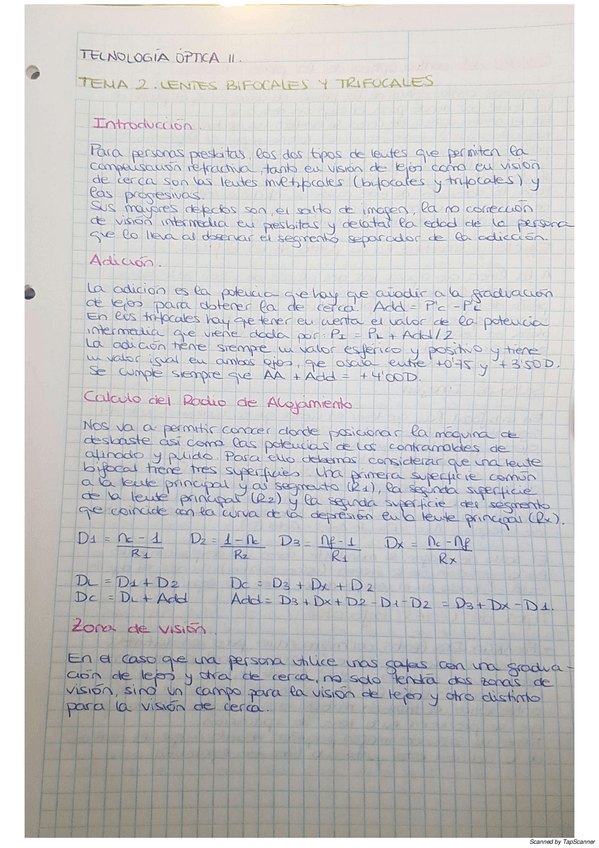 TECNOLOGÍA ÓPTICA II.
TEMA 2. LENTES BIFOCALES Y TRIFOCALES
Introducción.
Para personas presbitas, los dos tipos de lentes que permiten la
compensación refractiva, tanto en visión de lejos como en visión
de cerca son las lentes multifocales (bifocales y trifocales) y
las progresivas.
Sus mayores defectos son, el salto de imagen, la no corrección
de visión intermedia en presbitas y delatar la edad de la persona
que lo lleva al observar el segmento separador de la adicción.
Adición.
La adición es la potencia que hay que añadir a la graduación
de lejos para obtener la de cerca. Add = P'c - P'L
En los trifocales hay que tener en cuenta el valor de la potencia
intermedia que viene dada por: PI = PL + Add/2
La adición tiene siempre un valor esférico y positivo y tiene
un valor igual en ambos ojos, que oscila entre +0'75 y +3'50D.
Se cumple siempre que AA + Add = +4'00D.
Calculo del Radio de Alojamiento
Nos va a permitir conocer donde posicionar la máquina de
desbaste así como las potencias de los contramoldes de
afinado y pulido. Para ello debemos considerar que una lente
bifocal tiene tres superficies. Una primera superficie común
a la lente principal y al segmento (R1), la segunda superficie
de la lente principal (R2) y la segunda superficie del segmento
que coincide con la curva de la depresión en la lente principal (Rx).
D1 = nc - 1 / R1 D2 = 1 - nc / R2 D3 = nf - 1 / R1 Dx = nc - nf / Rx
DL = D1 + D2 Dc = D3 + Dx + D2
Dc = DL + Add Add = D3 + Dx + D2 - D1 - D2 = D3 + Dx - D1.
Zona de visión.
En el caso que una persona utilice unas gafas con una gradua-
ción de lejos y otra de cerca, no solo tendrá dos zonas de
visión, sino un campo para la visión de lejos y otro distinto
para la visión de cerca.
Scanned by TapScanner